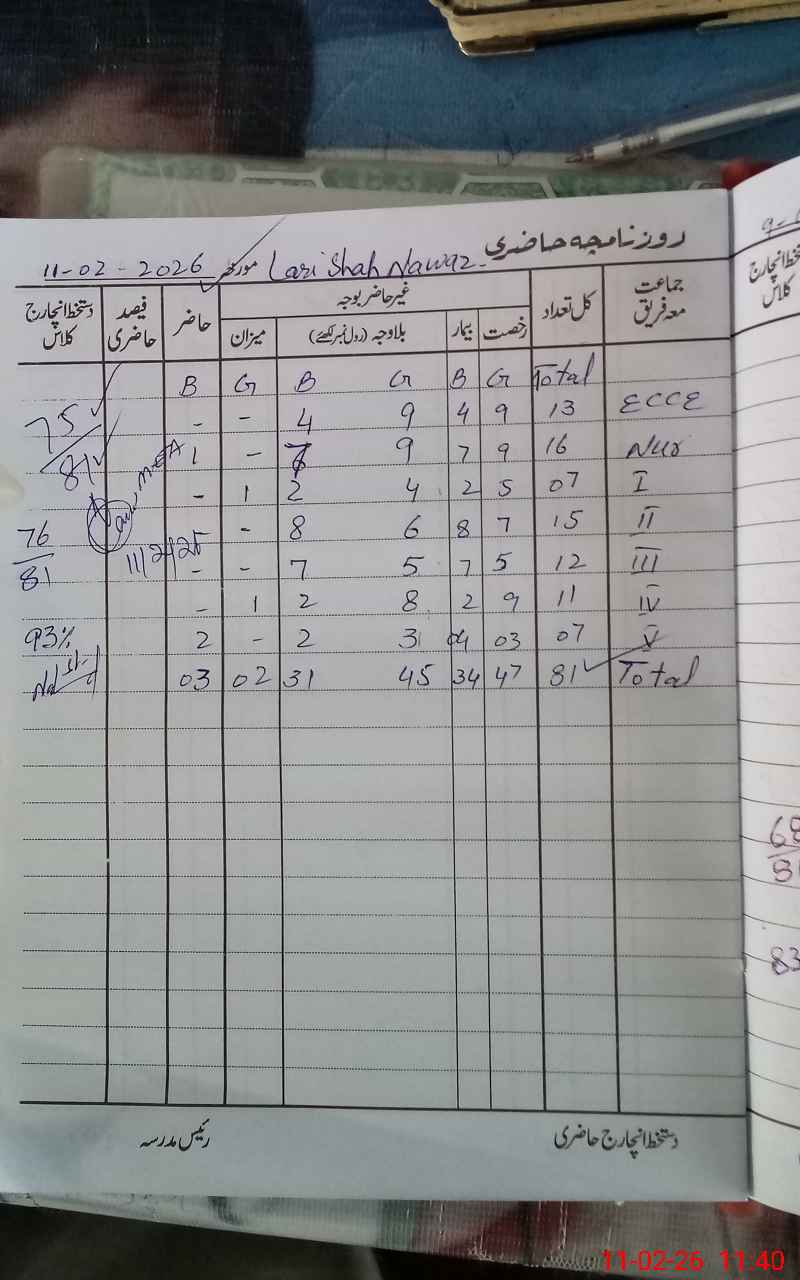 روزنامچہ حاضری
11-02-2026 مورخہ Lari Shah Nawaz
جماعت معہ فریق کل تعداد غیر حاضر بوجہ حاضر فیصد حاضری دستخط انچارج کلاس
رخصت بیمار بلاوجہ (رول نمبر لکھئے) میزان
B G B G B G Total
- - 4 9 4 9 13 ECCE
1 - 7 9 7 9 16 Nur
- 1 2 4 2 5 07 I
- 8 6 8 7 15 II
- - 7 5 7 5 12 III
- 1 2 8 2 9 11 IV
2 - 2 3 04 03 07 V
03 02 31 45 34 47 81 Total
75
81
76
81
93%
MEA
دستخط انچارج حاضری رئیس مدرسہ
خط انچارج کلاس
68
83
11-02-26 11:40